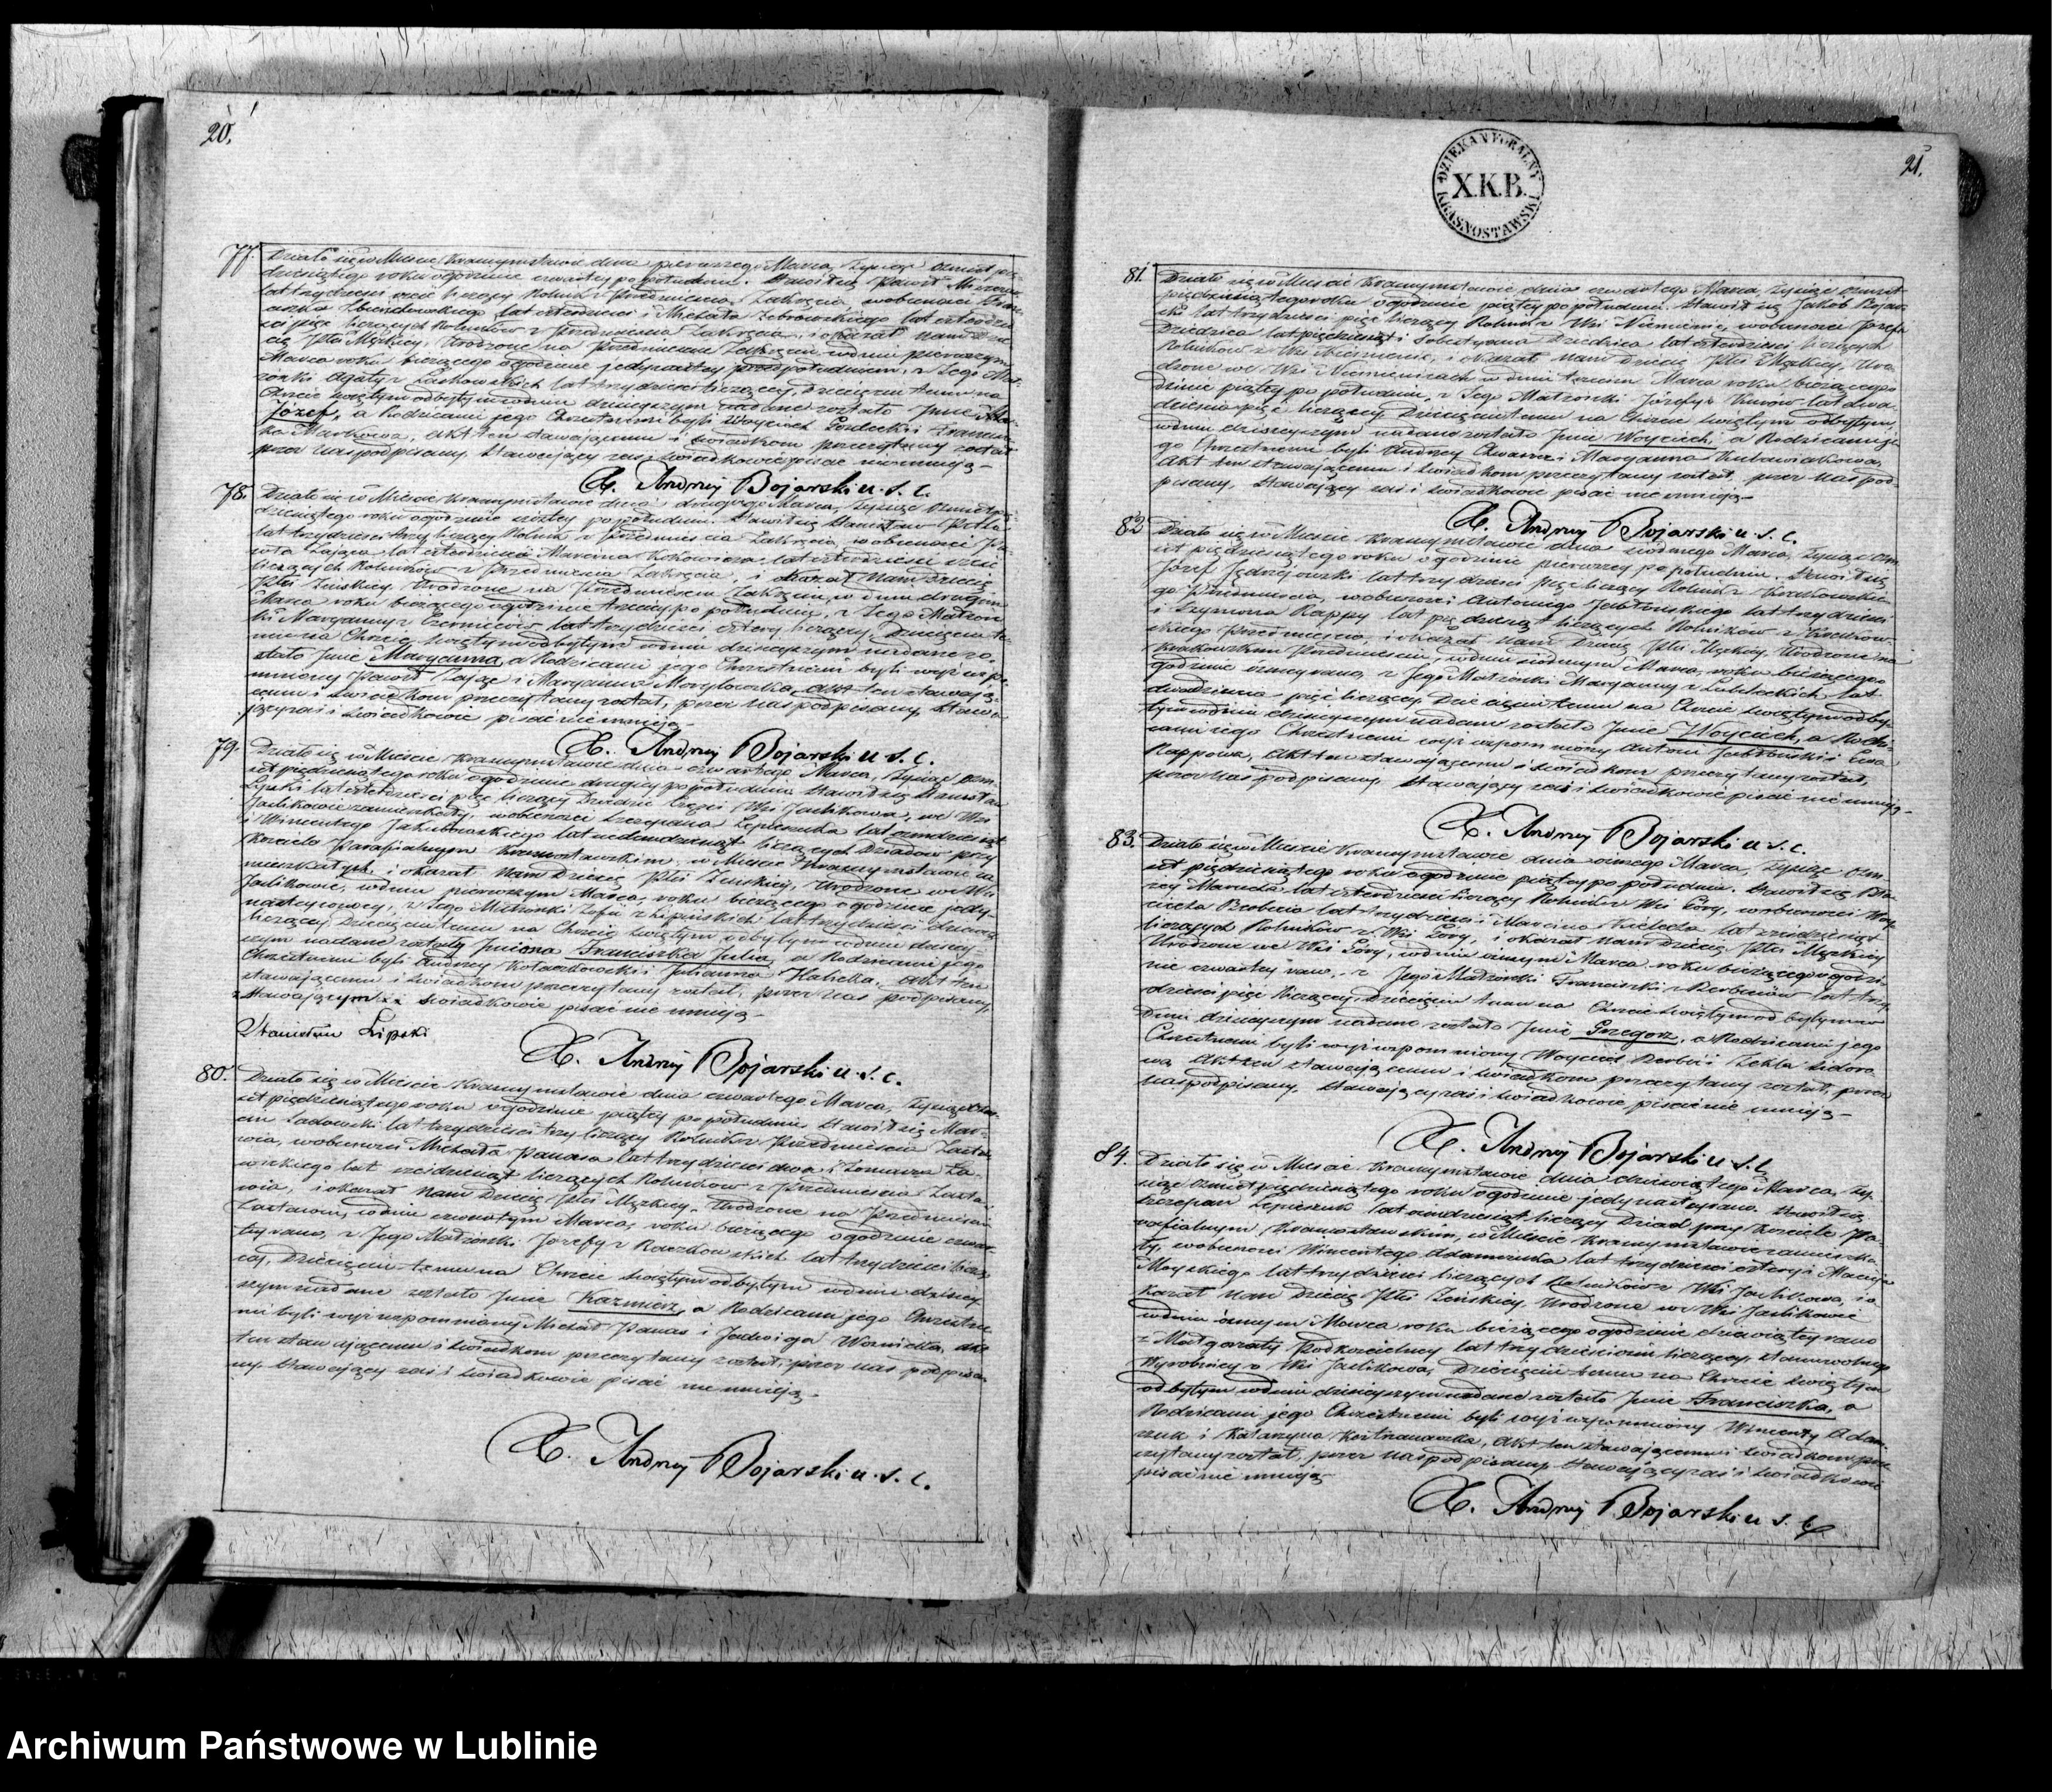 20.
77. Działo się w Mieście Krasnymstawie dnia pierwszego Marca, tysiąc ośmset pięć-
dziesiątego roku o godzinie czwartey po południu. Stawił się Paweł
lat trzydzieści liczący Rolnik z Przedmieścia Zakręcia, w obecności
lat czterdzieści i Michała Żebrowskiego lat czterdzie-
ści pięć liczących Rolników z Przedmieścia Zakręcia, i okazał nam Dzie-
cię Płci Męskiey, Urodzone na Przedmieściu Zakręciu w dniu pierwszym
Marca roku bieżącego o godzinie jedynastey przed południem, z Jego Mał-
żonki Agaty z lat trzydzieści liczącey, Dziecięciu temu na
Chrzcie Świętym odbytym w dniu dzisieyszym nadane zostało Imie
Józef, a Rodzicami jego Chrzestnemi byli Woyciech i
Markowa, Akt ten stawaiącemu i Świadkom przeczytany został
przez Nas podpisany. Stawaiący zaś i Świadkowie pisać nie umieją
X. Andrzej Bojarski u. s. c.
78. Działo się w Mieście Krasnymstawie dnia drugiego Marca, tysiąc ośmset pięć-
dziesiątego roku o godzinie szóstey po południu. Stawił się Stanisław
lat trzydzieści trzy liczący Rolnik z Przedmieścia Zakręcia, w obecności Pa-
wła Zająca lat czterdzieści i Marcina lat czterdzieści sześć
liczących Rolników z Przedmieścia Zakręcia, i okazał Nam Dziecię
Płci Żeńskiey, Urodzone na Przedmieściu Zakręciu, w dniu drugim
Marca roku bieżącego o godzinie trzeciey po południu, z Jego Małżon-
ki Maryanny z lat trzydzieści cztery liczącey, Dziecięciu te-
mu na Chrzcie Świętym odbytym w dniu dzisieyszym nadane zo-
stało Imie Maryanna, a Rodzicami jego Chrzestnemi byli wyż wspo-
mniony Paweł Zając i Maryanna Akt ten stawają-
cemu i Świadkom przeczytany został, przez Nas podpisany, Stawa-
jący zaś i Świadkowie pisać nie umieją.
X. Andrzej Bojarski u. s. c.
79. Działo się w Mieście Krasnymstawie dnia czwartego Marca, tysiąc ośm-
set pięćdziesiątego roku o godzinie drugiey po południu. Stawił się Stanisław
Lipski lat czterdzieści pięć liczący Dziedzic Części Wsi Jaślikowa, we Wsi
Jaślikowie zamieszkały, w obecności Szczepana Lepieszuka lat ośmdziesiąt
i Wincentego Jakubowskiego lat siedmdziesiąt liczących Dziadów przy
Kościele Parafialnym Krasnostawskim, w Mieście Krasnymstawie za-
mieszkałych, i okazał Nam Dziecię Płci Żeńskiey, Urodzone we Wsi
Jaślikowie, w dniu pierwszym Marca, roku bieżącego o godzinie jedy-
nastey w nocy, z Jego Małżonki Zofii z Lipińskich lat trzydzieści
liczącey, Dziecięciu temu na Chrzcie Świętym odbytym w dniu dzisiey-
szym nadane zostały Imiona Franciszka Julia, a Rodzicami jego
Chrzestnemi byli Andrzey i Julianna Halicka, Akt ten
stawaiącemu i Świadkom przeczytany został, przez Nas podpisany,
z Stawającym Świadkowie pisać nie umieją
Stanisław Lipski
X. Andrzej Bojarski u. s. c.
80. Działo się w Mieście Krasnymstawie dnia czwartego Marca, tysiąc ośm-
set pięćdziesiątego roku o godzinie piątey po południu. Stawił się Mar-
cin Sadowski lat trzydzieści trzy liczący Rolnik z Przedmieścia Zasta-
wia, w obecności Michała Panasa lat trzydzieści dwa i Tomasza
lat sześćdziesiąt liczących Rolników z Przedmieścia Zasta-
wia, i okazał Nam Dziecię Płci Męskiey, Urodzone na Przedmieściu
Zastawiu, w dniu czwartym Marca, roku bieżącego o godzinie czwar-
tey rano, z Jego Małżonki Józefy z Raczkowskich lat trzydzieści liczą-
cey, Dziecięciu temu na Chrzcie Świętym odbytym w dniu dzisiey-
szym nadane zostało Imie Kazmierz, a Rodzicami jego Chrzestne-
mi byli wyż wspomniany Michał Panas i Jadwiga Akt
ten stawającemu i Świadkom przeczytany został, przez Nas podpisa-
ny. Stawający zaś i Świadkowie pisać nie umieją.
X. Andrzej Bojarski u. s. c.
DZIEKAN FORALNY
X.K.B.
KRASNOSTAWSKI
21.
81. Działo się w Mieście Krasnymstawie dnia czwartego Marca, tysiąc ośmset
pięćdziesiątego roku o godzinie piątey po południu. Stawił się Jakob Bojar-
ski lat trzydzieści pięć liczący Rolnik z Wsi Niemienic, w obecności Józefa
Dziedzica lat pięćdziesiąt i Sobestyana Dziedzica lat czterdzieści liczących
Rolników z Wsi Niemienic, i okazał Nam Dziecię Płci Męskiey, Uro-
dzone we Wsi Niemienicach w dniu trzecim Marca roku bieżącego o go-
dzinie piątey po południu, z Jego Małżonki Józefy z lat dwa-
dzieścia pięć liczącey, Dziecięciu temu na Chrzcie Świętym odbytym
w dniu dzisieyszym nadane zostało Imie Woyciech, a Rodzicami je-
go Chrzestnemi byli Andrzey i Maryanna
Akt ten stawaiącemu i Świadkom przeczytany został, przez Nas pod-
pisany, Stawający zaś i Świadkowie pisać nie umieją
X. Andrzej Bojarski u. s. c.
82 Działo się w Mieście Krasnymstawie dnia siódmego Marca, tysiąc ośm-
set pięćdziesiątego roku o godzinie pierwszey po południu. Stawił się
Józef Jędrzejowski lat trzydzieści pięć liczący Rolnik z Krakowskie-
go Przedmieścia, w obecności Antoniego Jabłońskiego lat trzydzieści
i Szymona Rappy lat pięćdziesiąt liczących Rolników z Krakow-
skiego Przedmieścia, i okazał Nam Dziecię Płci Męskiey, Urodzone na
Krakowskim Przedmieściu, w dniu siódmym Marca, roku bieżącego o
godzinie rano, z Jego Małżonki Maryanny z lat
dwadzieścia pięć liczącey, Dziecięciu temu na Chrzcie Świętym odby-
tym w dniu dzisieyszym nadane zostało Imie Woyciech, a Rodzi-
cami jego Chrzestnemi wyż wspomniony Antoni Jabłoński i Ewa
Rappowa, Akt ten stawającemu i Świadkom przeczytany został,
przez Nas podpisany. Stawający zaś i Świadkowie pisać nie umieją
X. Andrzej Bojarski u. s. c.
83. Działo się w Mieście Krasnymstawie dnia ósmego Marca, tysiąc ośm-
set pięćdziesiątego roku o godzinie piątey po południu. Stawił się
lat czterdzieści liczący Rolnik z Wsi Góry, w obecności Woy-
ciecha Berbecia lat trzydzieści i Marcina lat
liczących Rolników z Wsi Góry, i okazał Nam Dziecię Płci Męskiey
Urodzone we Wsi Góry, w dniu ósmym Marca roku bieżącego o godzi-
nie czwartey rano, z Jego Małżonki Franciszki z Berbeciów lat trzy-
dzieści pięć liczącey, Dziecięciu temu na Chrzcie Świętym odbytym w
Dniu dzisieyszym nadane zostało Imie Grzegorz, a Rodzicami jego
Chrzestnemi byli wyż wspomniony Woyciech Berbeć i Tekla Sidoro-
wa, Akt ten stawającemu i Świadkom przeczytany został, przez
Nas podpisany. Stawający zaś i Świadkowie pisać nie umieją
X. Andrzej Bojarski u. s. c.
84. Działo się w Mieście Krasnymstawie dnia dziewiątego Marca, ty-
siąc ośmset pięćdziesiątego roku o godzinie jedynastey rano. Stawił się
Szczepan Lepieszuk lat ośmdziesiąt liczący Dziad przy Kościele Pa-
rafialnym Krasnostawskim, w Mieście Krasnymstawie zamieszka-
ły, w obecności Wincentego Adamczuka lat trzydzieści cztery i Macieja
lat trzydzieści liczących Rolników z Wsi Jaślikowa, i o-
kazał Nam Dziecię Płci Żeńskiey, Urodzone we Wsi Jaślikowie
w dniu ósmym Marca roku bieżącego o godzinie dziewiątey rano
z Małgorzaty Podkościelney lat trzydzieści liczącey, stanu wolnego
Wyrobnicy z Wsi Jaślikowa, Dziecięciu temu na Chrzcie Świętym
odbytym w dniu dzisieyszym nadane zostało Imie Franciszka, a
Rodzicami jego Chrzestnemi byli wyż wspomniony Wincenty Adam-
czuk i Katarzyna Akt ten stawającemu i Świadkom prze-
czytany został, przez Nas podpisany. Stawający zaś i Świadkowie
pisać nie umieją
X. Andrzej Bojarski u. s. c.
Archiwum Państwowe w Lublinie